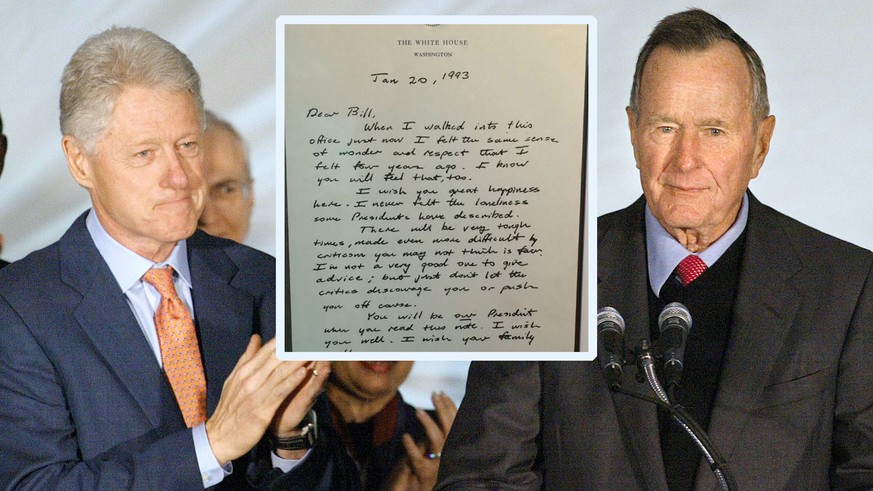 THE WHITE HOUSE
WASHINGTON
Jan 20, 1993
Dear Bill,
When I walked into this
office just now I felt the same sense
of wonder and respect that I
felt four years ago. I know
you will feel that, too.
I wish you great happiness
here. I never felt the loneliness
some Presidents have described.
There will be very tough
times, made even more difficult by
criticism you may not think is fair.
I'm not a very good one to give
advice; but just don't let the
critics discourage you or push
you off course.
You will be our President
when you read this note. I wish
you well. I wish your family